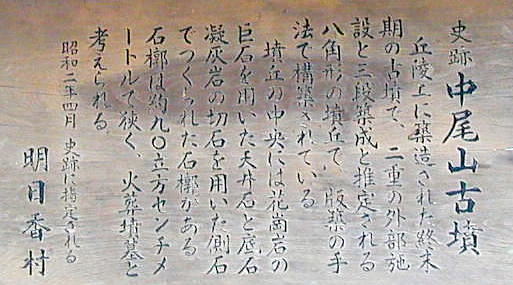 史跡 中尾山古墳
丘陵上に築造された終末
期の古墳で、二重の外部施
設と三段築成と推定される
八角形の墳丘で、版築の手
法で構築されている
墳丘の中央には花崗岩の
巨石を用いた天井石と底石
凝灰岩の切石を用いた側石
でつくられた石槨がある
石槨は約九〇立方センチメ
ートルで狭く、火葬墳墓と
考えられる
昭和二年四月 史跡に指定される
明日香村